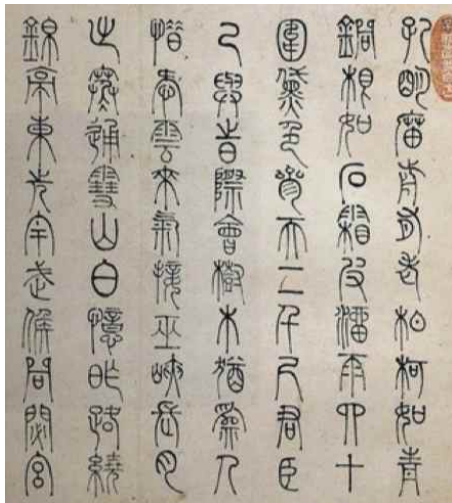 孔明廟前有老柏柯如青
銅根如石霜皮溜雨四十
圍黛色參天二千尺君臣
已與時際會樹木猶為人
惜愛雲來氣接巫峽長月
出寒通雪山白憶昨路繞
錦亭東先主武侯同閟宮